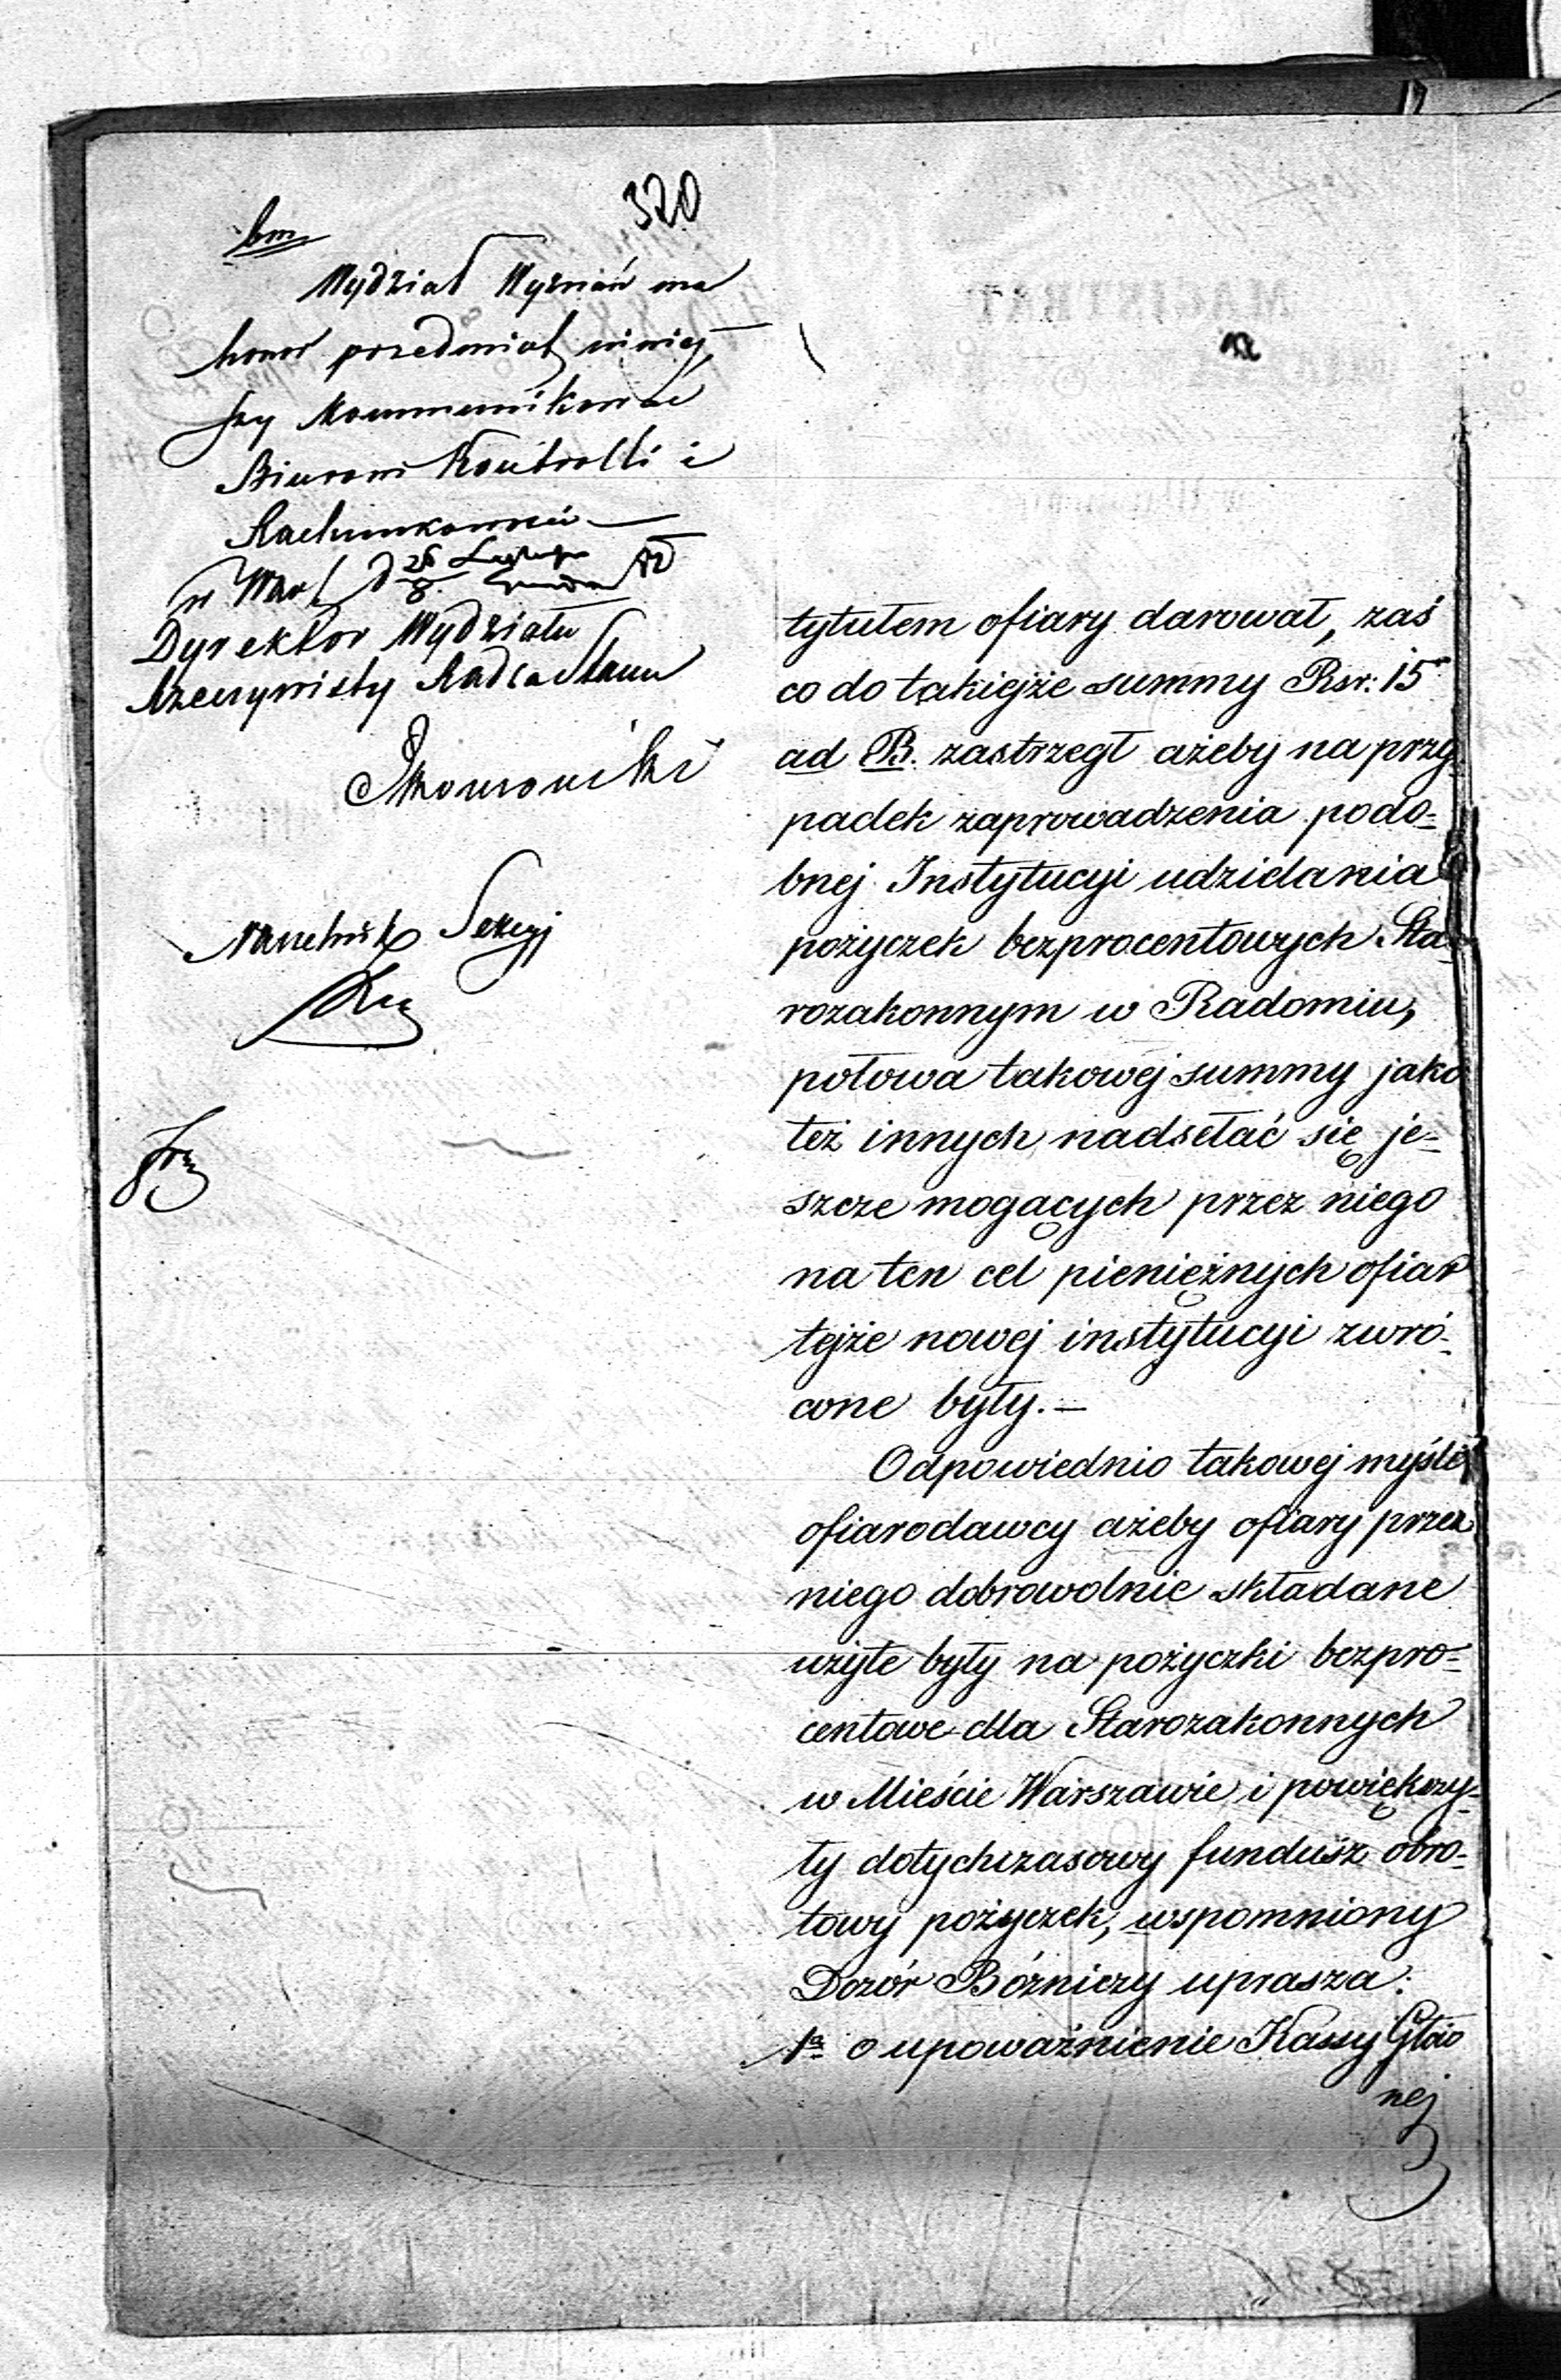 320
bm
Wydział Wyznań ma
honor przedmiot niniej
szy kommunikować
Biurowi Kontrolli i
Rachunkowości
w War d 26 Listopa 8. Grudnia
Dyrektor Wydziału
Rzeczywisty Radca Stanu
Naczelnik Sekcyi
tytułem ofiary darował, zaś
co do takiejże summy Rsr: 15
ad B. zastrzegł ażeby na przy
padek zaprowadzenia podo-
bnej Instytucyi udzielania
pożyczek bezprocentowych Sta-
rozakonnym w Radomiu,
połowa takowej summy jako
też innych nadsełać się je-
szcze mogących przez niego
na ten cel pieniężnych ofiar
tejże nowej instytucyi zwró-
cone były.—
Odpowiednio takowej myśli
ofiarodawcy ażeby ofiary przez
niego dobrowolnie składane
użyte były na pożyczki bezpro-
centowe dla Starozakonnych
w Mieście Warszawie i powiększy-
ły dotychczasowy fundusz obro-
towy pożyczek, wspomniony
Dozór Bóżniczy uprasza:
1o o upoważnienie Kassy Głów
nej